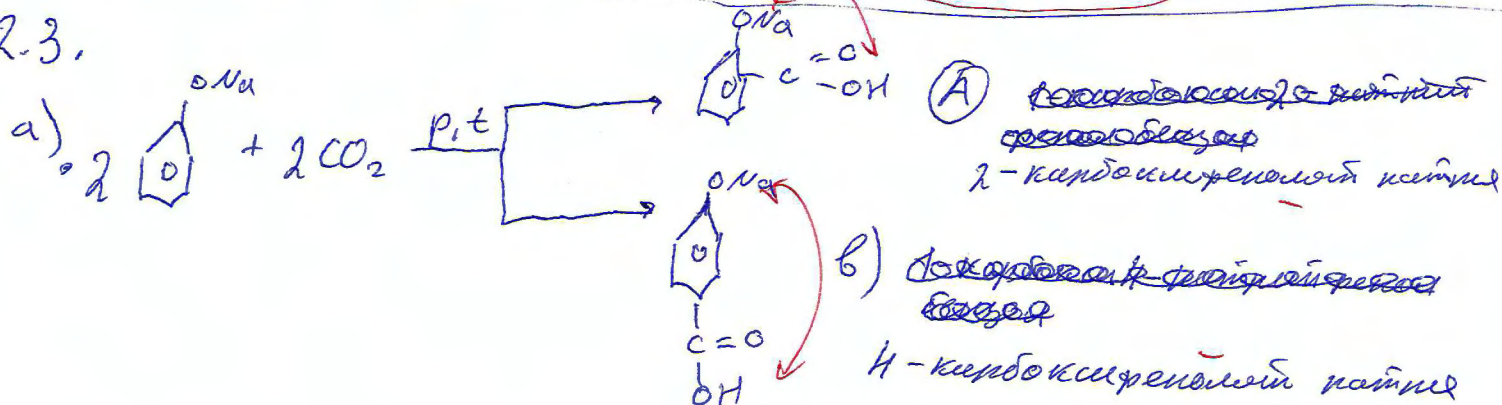 2.3.
a). 2 ONa + 2CO₂ p, t
ONa
C =O
-OH
A
2-карбоксифенолят натрия
ONa
C=O
OH
в)
4-карбоксифенолят натрия